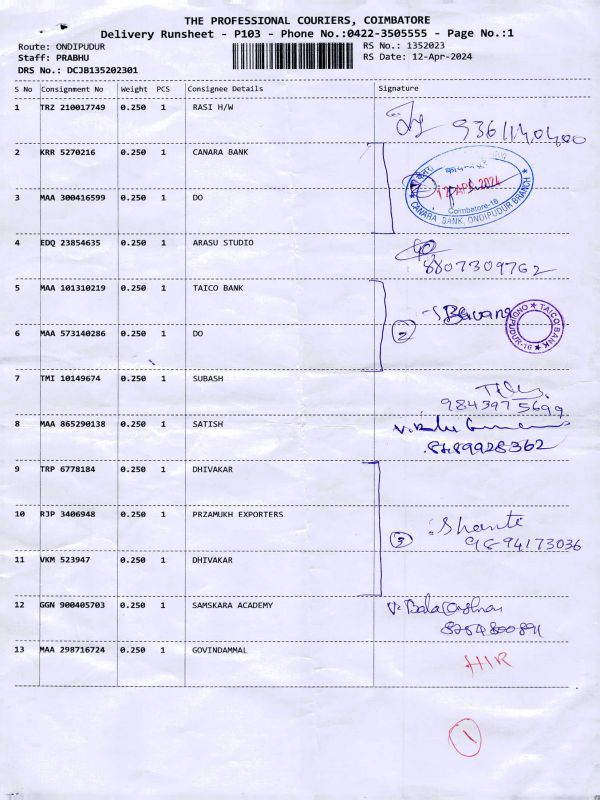 THE PROFESSIONAL COURIERS, COIMBATORE
Delivery Runsheet - P103 - Phone No.:0422-3505555 - Page No.:1
Route: ONDIPUDUR RS No.: 1352023
Staff: PRABHU RS Date: 12-Apr-2024
DRS No.: DCJB135202301
S No Consignment No Weight PCS Consignee Details Signature
1 TRZ 210017749 0.250 1 RASI H/W
2 KRR 5270216 0.250 1 CANARA BANK
12 APR 2024
Coimbatore-16
★ CANARA BANK, ONDIPUDUR BRANCH ★
3 MAA 300416599 0.250 1 DO
4 EDQ 23854635 0.250 1 ARASU STUDIO
8807309762
5 MAA 101310219 0.250 1 TAICO BANK
2
★ TAICO BANK ★ ONDIPUDUR-16
6 MAA 573140286 0.250 1 DO
7 TMI 10149674 0.250 1 SUBASH
9843975699
8 MAA 865290138 0.250 1 SATISH
9 TRP 6778184 0.250 1 DHIVAKAR
10 RJP 3406948 0.250 1 PRZAMUKH EXPORTERS
3 Shanti
9894173036
11 VKM 523947 0.250 1 DHIVAKAR
12 GGN 900405703 0.250 1 SAMSKARA ACADEMY
13 MAA 298716724 0.250 1 GOVINDAMMAL
1